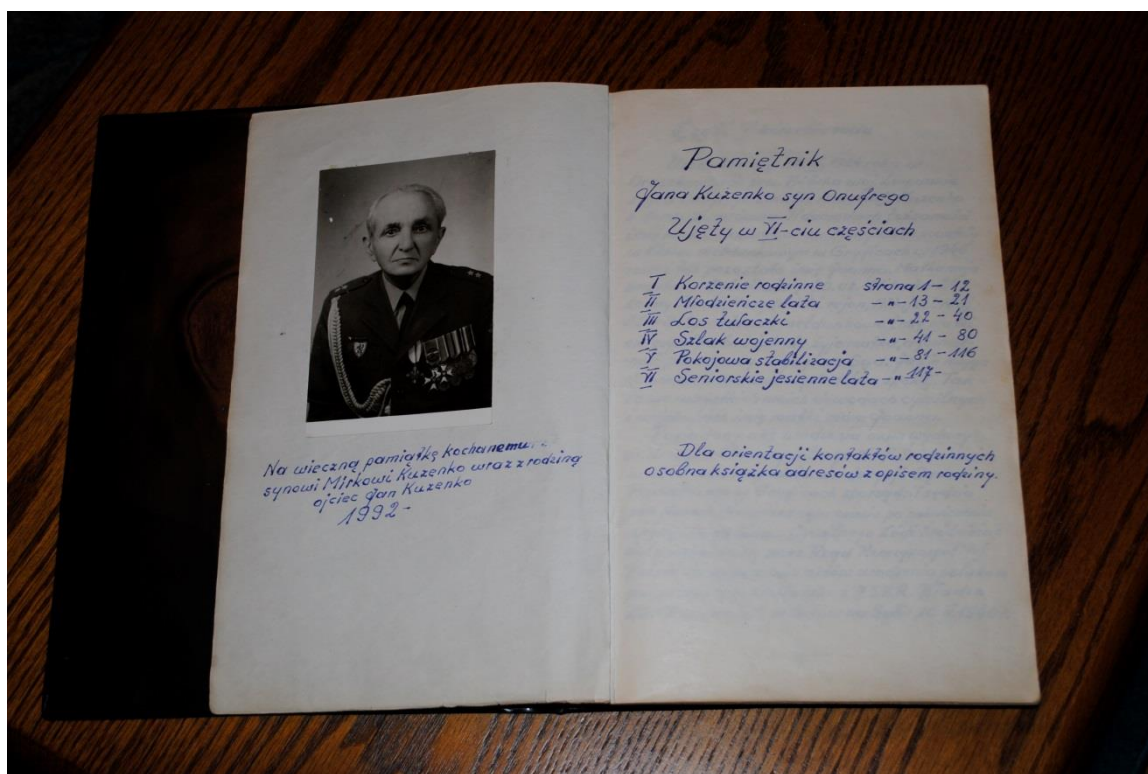 Na wieczną pamiątkę kochanemu
synowi Mirkowi Kużenko wraz z rodziną
ojciec Jan Kużenko
1992-
Pamiętnik
Jana Kużenko syn Onufrego
Ujęty w VI-ciu częściach
I Korzenie rodzinne strona 1 - 12
II Młodzieńcze lata -"- 13 - 21
III Los tułaczki -"- 22 - 40
IV Szlak wojenny -"- 41 - 80
V Pokojowa stabilizacja -"- 81 - 116
VI Seniorskie jesienne lata -"- 117-
Dla orientacji kontaktów rodzinnych
osobna książka adresów z opisem rodziny.